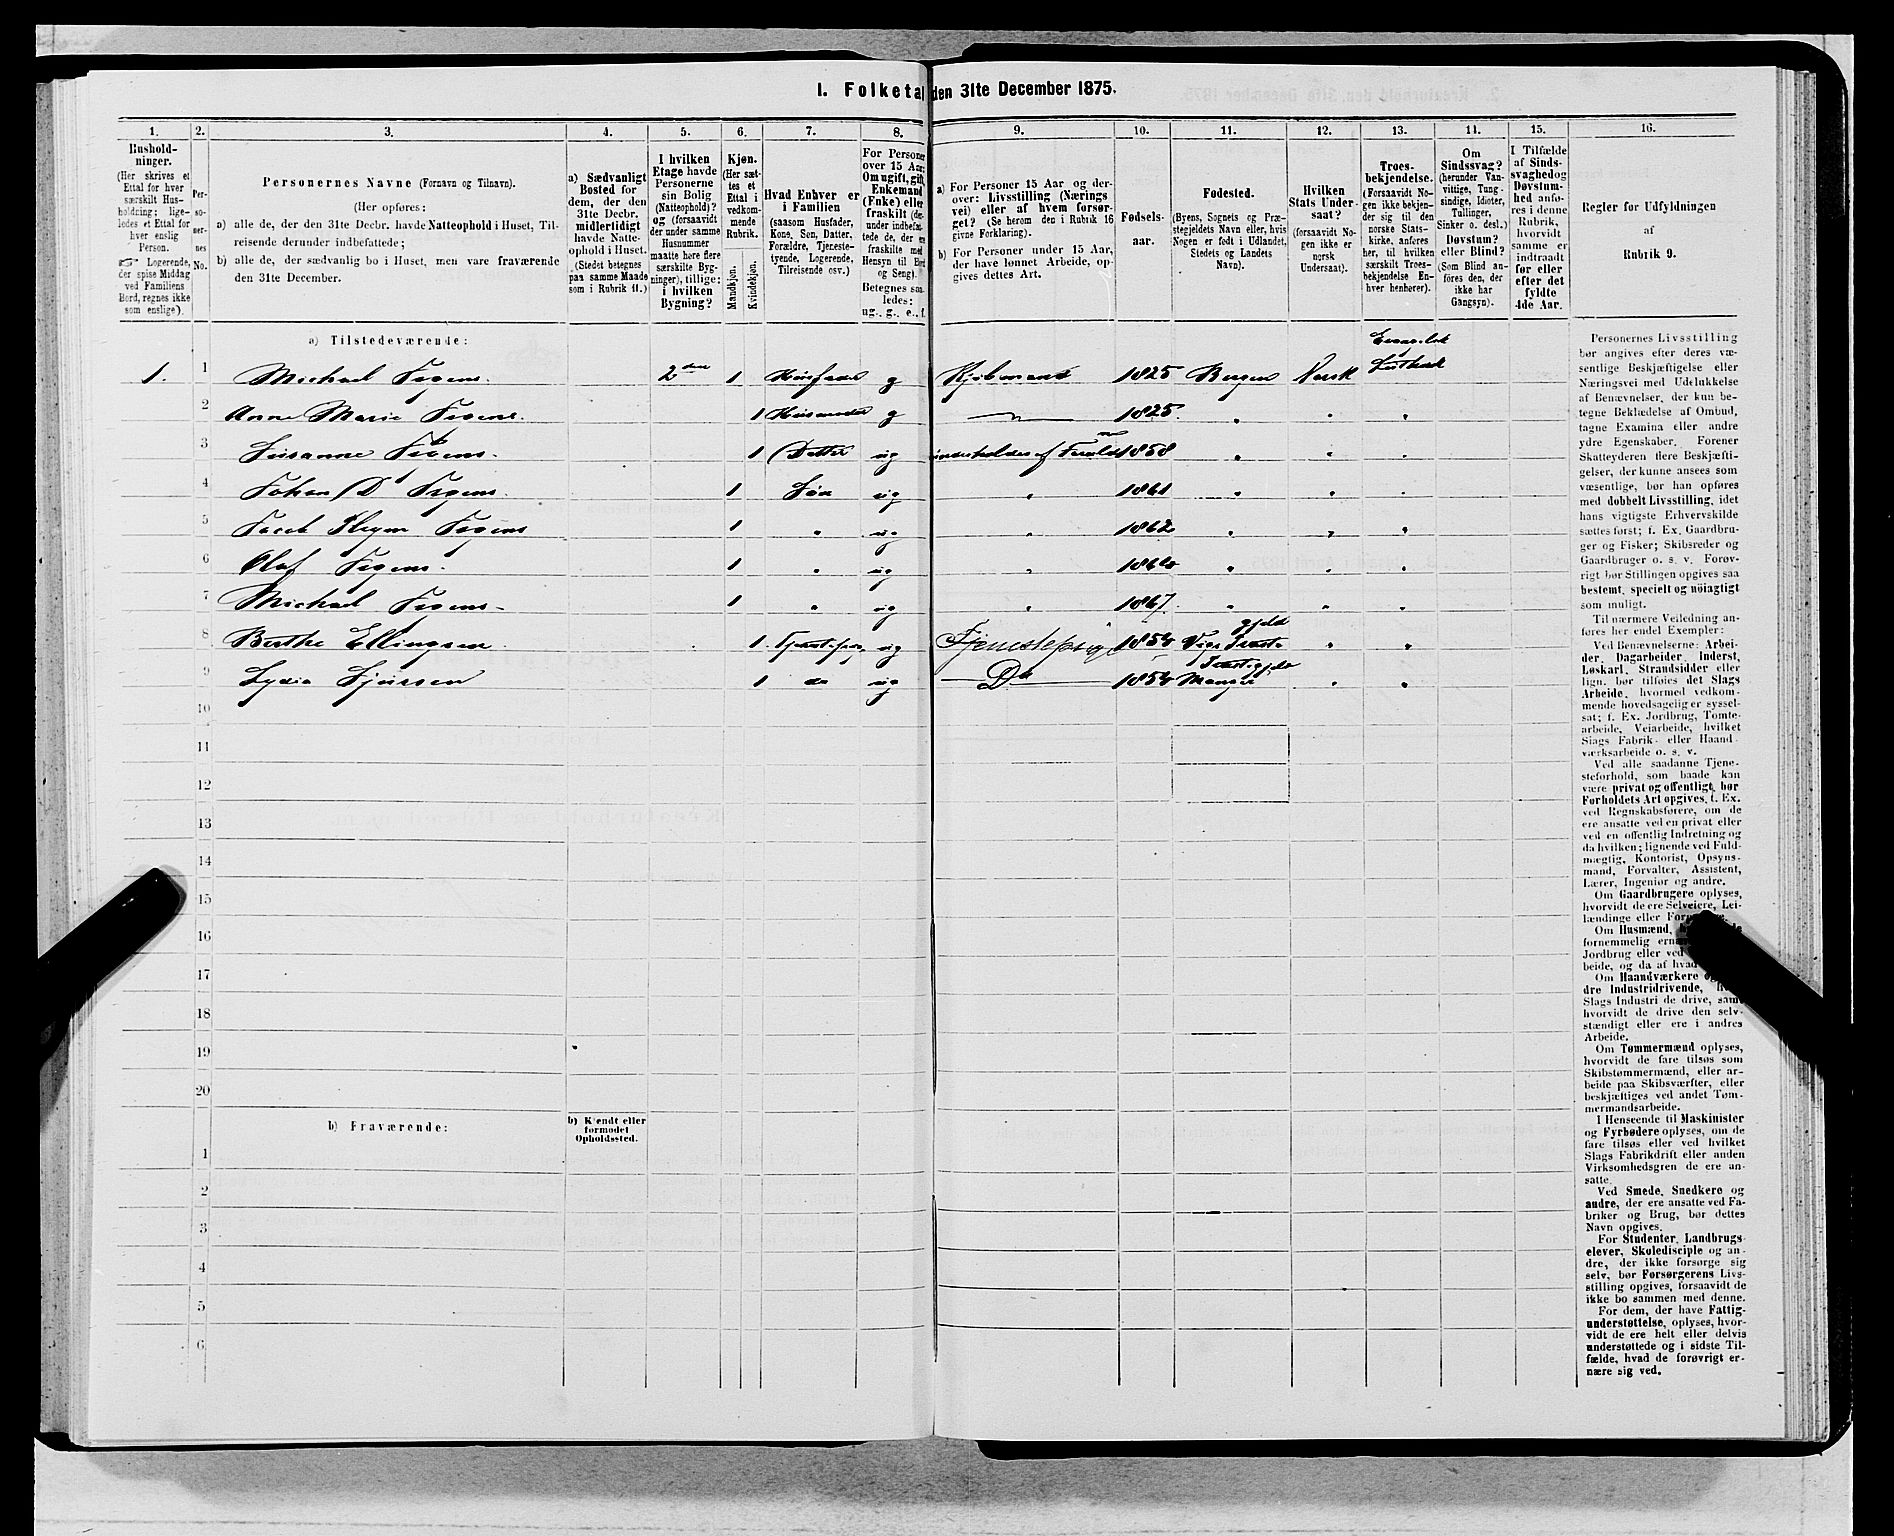 1. Folketa den 31te December 1875.
1.
2.
3.
4.
5.
6.
7.
8.
9.
10.
11.
12.
13.
14.
15.
16.
Hushold-
ninger.
(Her skrives et
Ettal for hver
særskilt Hus-
holdning; lige-
ledes et Ettal for
hver enslig
Person.
☞ Logerende,
der spise Middag
ved Familiens
Bord, regnes ikke
som enslige).
Per-
so-
ner-
nes
No.
Personernes Navne (Fornavn og Tilnavn).
(Her opføres:
a) alle de, der den 31te Decbr. havde Natteophold i Huset, Til-
reisende derunder indbefattede;
b) alle de, der sædvanlig bo i Huset, men vare fraværende
den 31te December.
a) Sædvanligt
Bosted for
dem, der den
31te Decbr.
midlertidigt
havde Natte-
ophold i Huset.
(Stedet betegnes
paa samme Maade
som i Rubrik 11.)
I hvilken
Etage havde
Personerne
sin Bolig
(Natteophold)?
og (forsaavidt
der under samme
Husnummer
maatte høre flere
særskilte Byg-
ninger), tillige:
i hvilken
Bygning?
Kjøn.
(Her sæt-
tes et
Ettal i
vedkom-
mende
Rubrik.
Mandkjøn.
Kvindekjøn.
Hvad Enhver er
i Familien
(saasom Husfader,
Kone, Søn, Datter,
Forældre, Tjeneste-
tyende, Logerende,
Tilreisende osv.)
For Personer
over 15 Aar:
Om ugift, gift,
Enkemand
(Enke) eller
fraskilt (de-
under indbefat-
tede de, der er
fraskilte med
Hensyn til Bord
og Seng).
Betegnes saa-
ledes:
ug., g., e., f.
a) For Personer 15 Aar og der-
over: Livsstilling (Nærings
vei) eller af hvem forsør-
get? (Se herom den i Rubrik 16
givne Forklaring).
b) For Personer under 15 Aar,
der have lønnet Arbeide, op-
gives dettes Art.
Fødsels-
aar.
Fødested.
(Byens, Sognets og Præ-
stegjeldets Navn eller, hvis
Nogen er født i Udlandet,
Stedets og Landets
Navn).
Hvilken
Stats Under-
saat?
(forsaavidt No-
gen ikke er
norsk
Undersaat).
Troes-
bekjendelse.
(Forsaavidt No-
gen ikke bekjen-
der sig til den
norske Stats-
kirke, anføres
her, til hvilken
særskilt Troes-
bekjendelse En-
hver henhører).
Om
Sindssvag?
(herunder Van-
vittige, Tung-
sindige, Idioter,
Tullinger,
Sinker o. desl.)
Døvstum?
eller Blind?
(Som Blind an-
føres den, der
ikke har
Gangsyn).
I Tilfælde
af Sinds-
svaghed og
Døvstum-
hed anfø-
res i denne
Rubrik,
hvorvidt
samme er
indtraadt
før eller
efter det
fyldte
4de Aar.
Regler for Udfyldningen
af
Rubrik 9.
a) Tilstedeværende:
Evang.
1. 1 Michael 2den 1 Husfader g Kjøbmand 1825 Bergen Norsk Luthersk
2 Anne Marie 1 Husmoder g 1825. " " "
3 Susanne 1 Datter ug underholdes af Foræld 1858 " " "
4 Johan D 1 Søn ug " 1861 " " "
5 Jacob 1 " ug " 1862 " " "
6 Olaf 1 " ug " " " "
7 Michael 1 " ug " 1867. " " "
gjeld
8 Berthe Ellingsen 1 ug Tjenestepige Præste " "
Præstegjeld
9 Lydia Sjursen 1 do ug Do Manger " "
10
11
12
13
14
15
16
17
18
19
20
b) Fraværende:
b) Kjendt eller
formodet
Opholdssted.
1
2
3
4
5
6
Personernes Livsstilling
bør angives efter deres væ-
sentlige Beskjæftigelse eller
Næringsvei med Udelukkelse
af Benævnelser, der kun be-
tegne Beklædelse af Ombud,
tagne Examina eller andre
ydre Egenskaber. Forener
Skatteyderen flere Beskjæfti-
gelser, der kunne ansees som
væsentlige, bør han opføres
med dobbelt Livsstilling, idet
hans vigtigste Erhvervskilde
sættes først; f. Ex. Gaardbru-
ger og Fisker; Skibsreder og
Gaardbruger o. s. v. Forøv-
rigt bør Stillingen opgives saa
bestemt, specielt og nöiagtigt
som muligt.
Til nærmere Veiledning an-
føres her endel Exempler:
Ved Benævnelserne: Arbei-
der, Dagarbeider, Inderst,
Løskarl, Strandsidder eller
lign. bør tilføies det Slags
Arbeide, hvormed vedkom-
mende hovedsagelig er syssel-
sat; f. Ex. Jordbrug, Tomte-
arbeide, Veiarbeide, hvilket
Slags Fabrik- eller Haand-
værksarbeide o. s. v.
Ved alle saadanne Tjene-
steforhold, som baade kan
være privat og offentligt, bør
Forholdets Art opgives, f. Ex.
ved Regnskabsførere, om de
ere ansatte ved en privat eller
ved en offentlig Indretning og
da hvilken; lignende ved Fuld-
mægtig, Kontorist, Opsyns-
mand, Forvalter, Assistent,
Lærer, Ingeniør og andre.
Om Gaardbrugere oplyses,
hvorvidt de ere Selveiere, Lei-
lændinge eller
Om Husmænd,
fornemmelig
Jordbrug eller ved
beide, og da af hvad
Om Haandværkere
dre Industridrivende,
Slags Industri de drive, samt
hvorvidt de drive den selv-
stændigt eller ere i andres
Arbeide.
Om Tømmermænd oplyses,
hvorvidt de fare tilsøs som
Skibstømmermænd, eller ar-
beide paa Skibsværfter, eller
beskjæftiges ved andet Tøm-
mermandsarbeide.
I Henseende til Maskinister
og Fyrbødere oplyses, om de
fare tilsøs eller ved hvilket
Slags Fabrikdrift eller anden
Virksomhedsgren de ere an-
satte.
Ved Smede, Snedkere og
andre, der ere ansatte ved Fa-
briker og Brug, bør dettes
Navn opgives.
For Studenter, Landbrugs-
elever, Skoledisciple og an-
dre, der ikke forsørge sig
selv, bør Forsørgerens Livs-
stilling opgives, forsaavidt de
ikke bo sammen med denne.
For dem, der have Fattig-
understøttelse, oplyses, hvor-
vidt de ere helt eller delvis
understøttede og i sidste Til-
fælde, hvad de forøvrigt er-
nære sig ved.